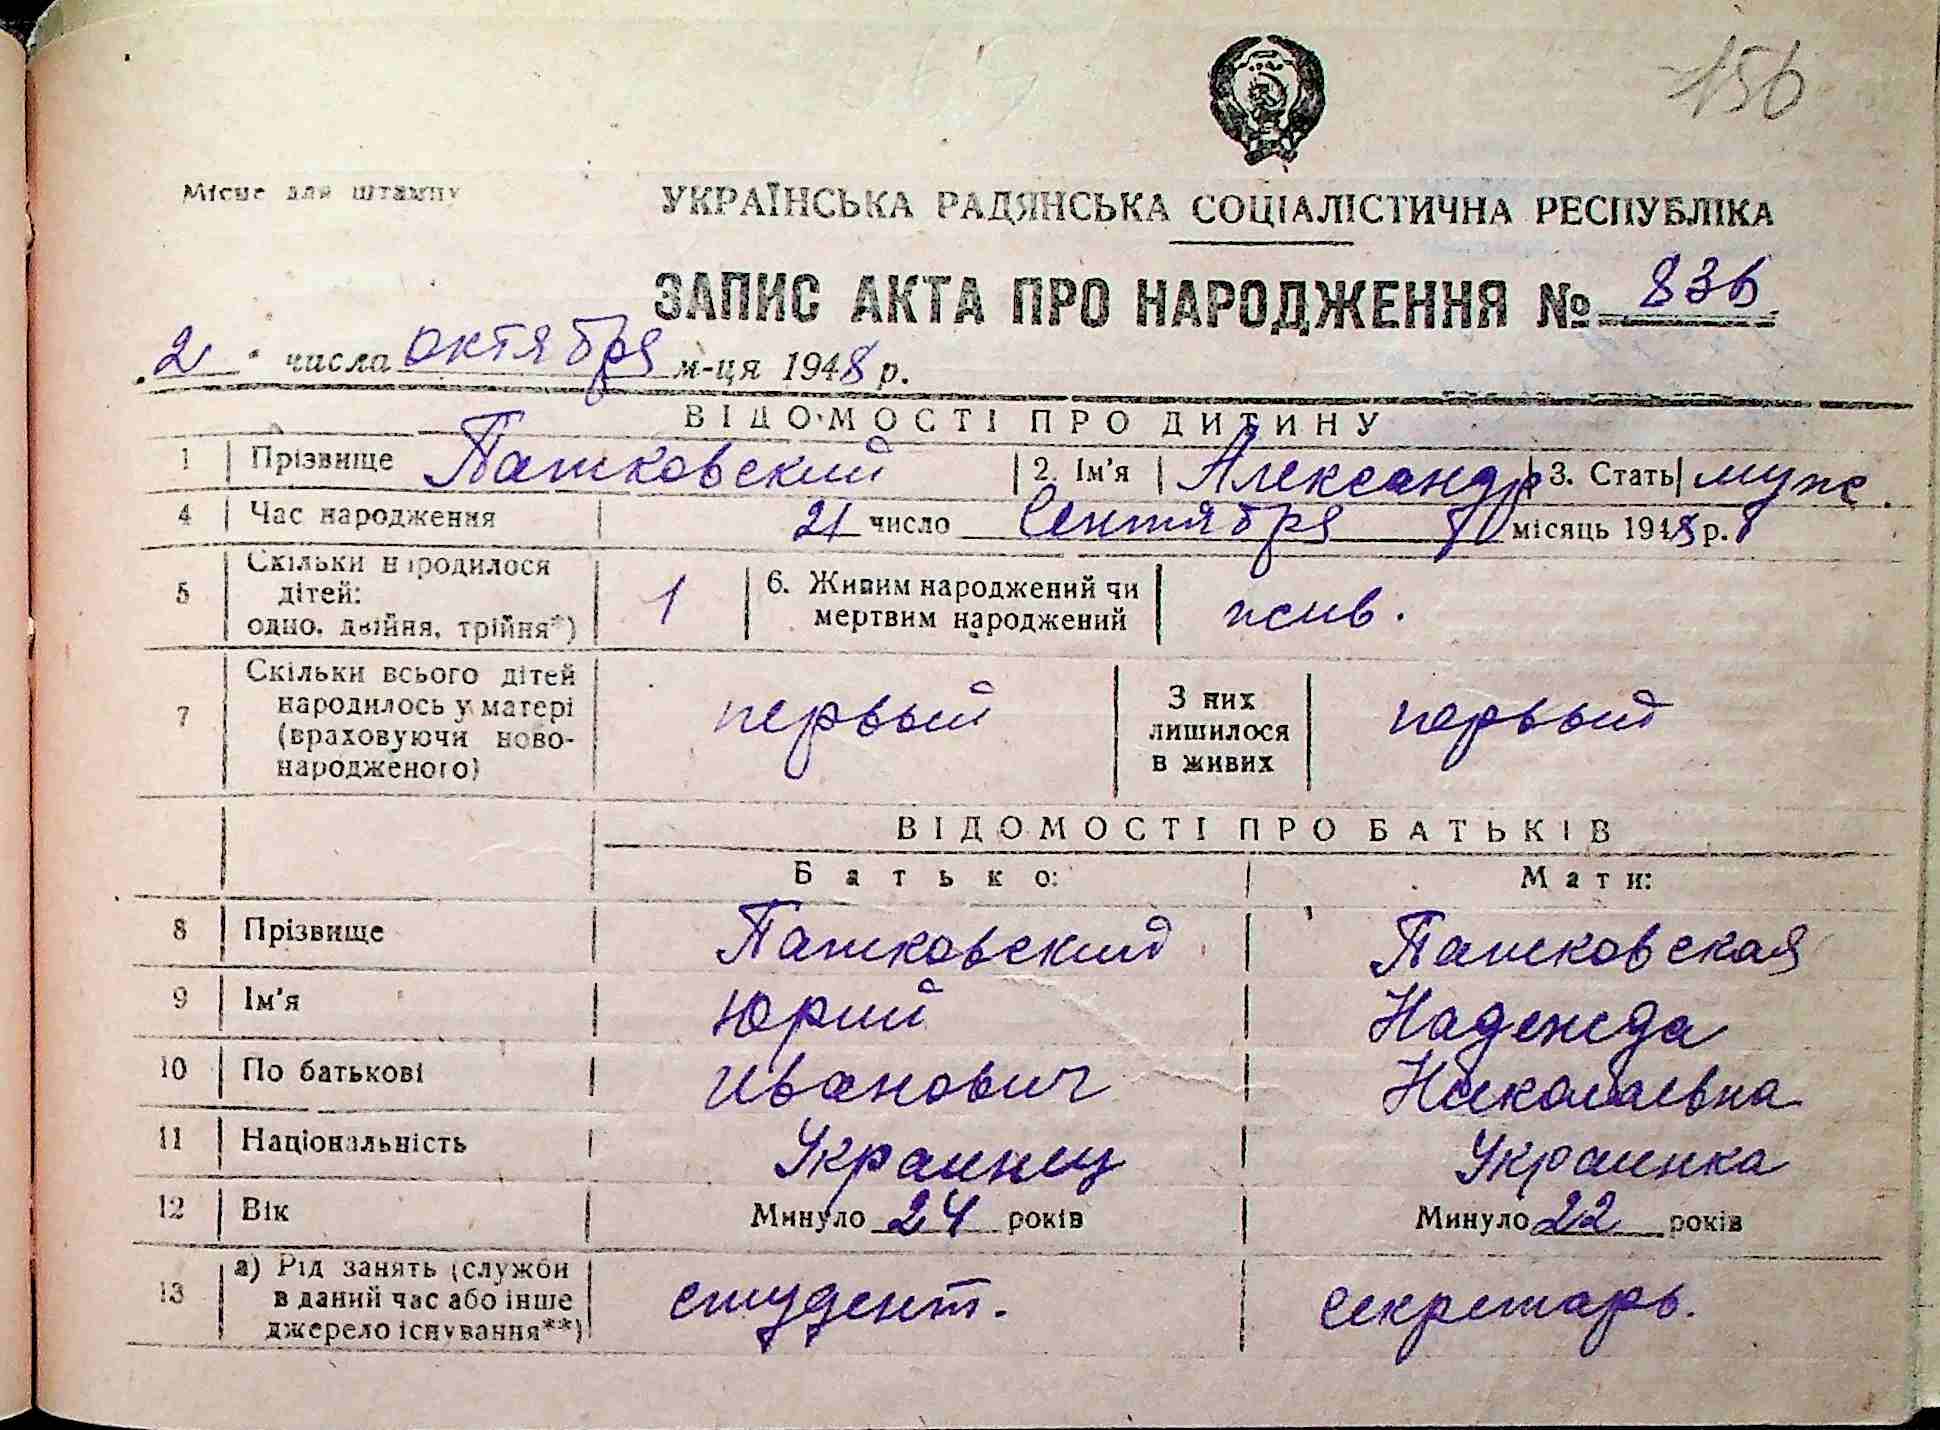 156
Місце для штампу
УКРАЇНСЬКА РАДЯНСЬКА СОЦІАЛІСТИЧНА РЕСПУБЛІКА
ЗАПИС АКТА ПРО НАРОДЖЕННЯ № 836
2 числа октября м-ця 1948 р.
ВІДОМОСТІ ПРО ДИТИНУ
1 Прізвище Пашковский 2. Ім'я Александр 3. Стать муж.
4 Час народження 21 число Сентября місяць 1948 р.
5 Скільки народилося дітей: одно, двійня, трійня*) 1 6. Живим народжений чи мертвим народжений жив.
7 Скільки всього дітей народилось у матері (враховуючи новонародженого) первый З них лишилося в живих первый
ВІДОМОСТІ ПРО БАТЬКІВ
Батько: Мати:
8 Прізвище Пашковский Пашковская
9 Ім'я Юрий Надежда
10 По батькові Иванович Николаевна
11 Національність Украинец Украинка
12 Вік Минуло 24 років Минуло 22 років
13 а) Рід занять (служби в даний час або інше джерело існування**) студент. секретарь.